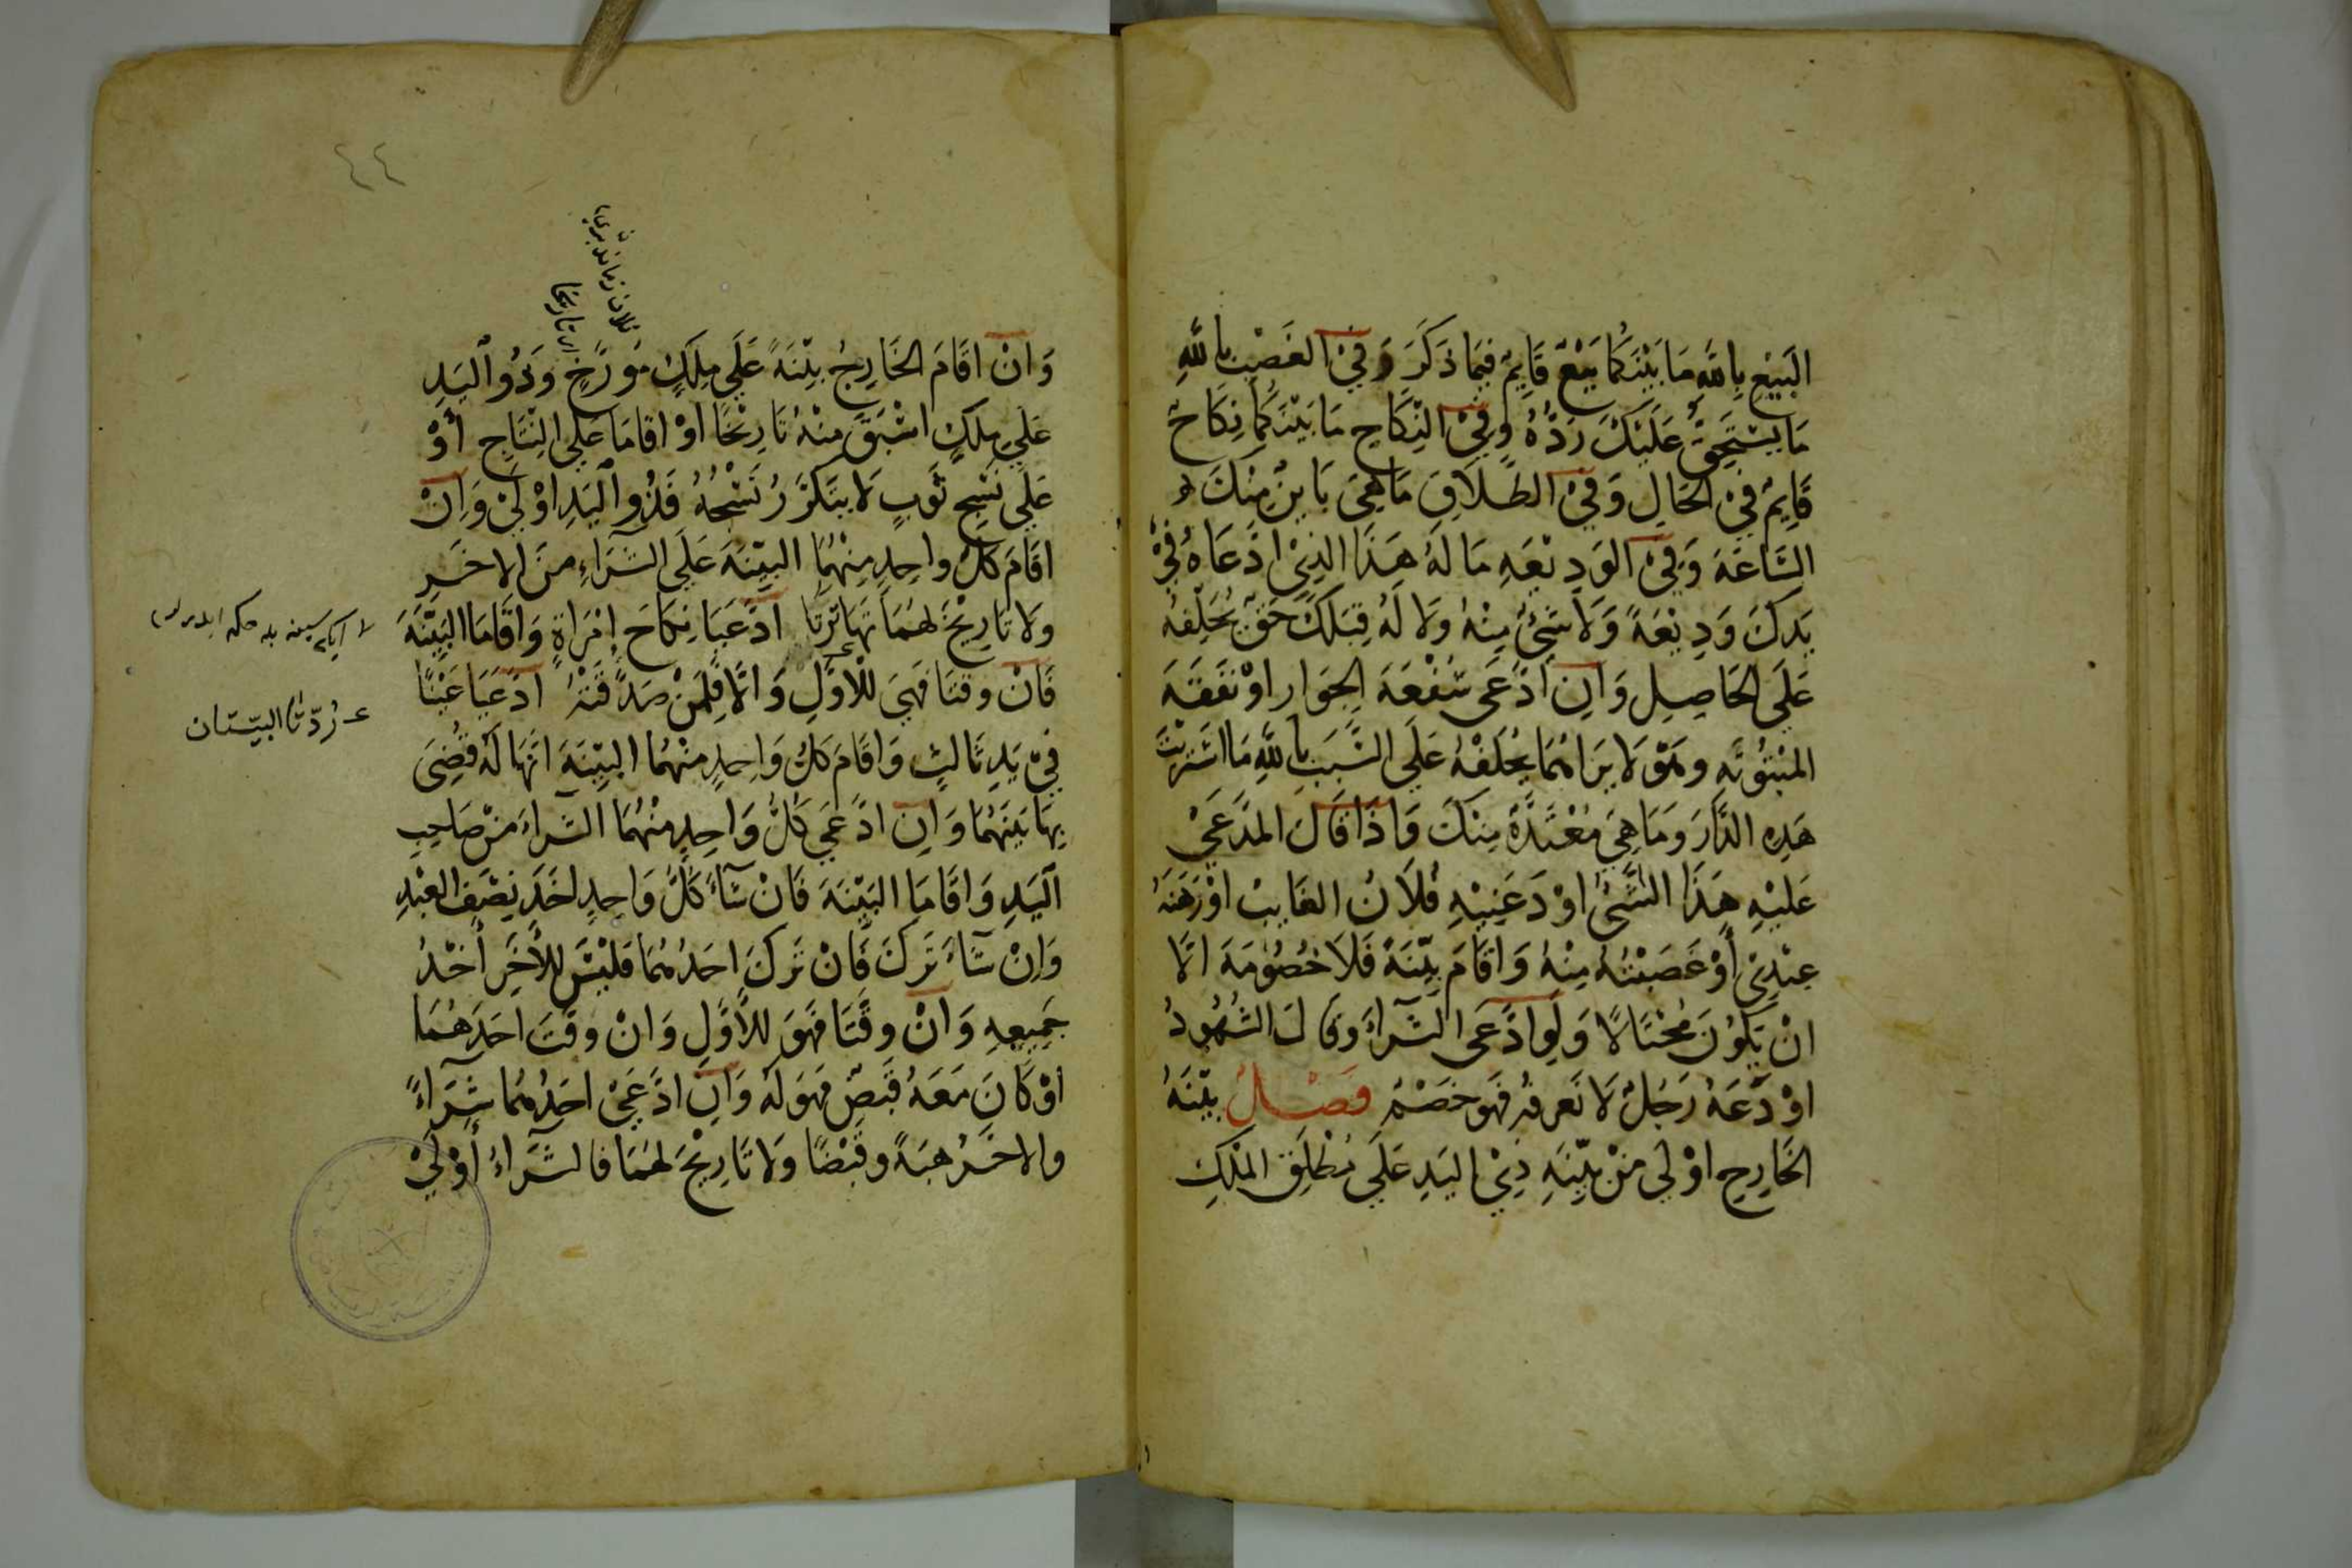 البَيْعِ بِاللهِ مَا بَيْنَكُمَا بَيْعٌ قَايِمٌ فِيمَا ذَكَرَ وَفِيْ الغَصْبِ بِاللهِ
مَا يَسْتَحِقُّ عَلَيْكَ رَدُّهُ وَفِيْ النِّكَاحِ مَا بَيْنَكُمَا نِكَاحٌ
قَايِمٌ فِيْ الحَالِ وَفِيْ الطَّلَاقِ مَا هِيَ بَايِنٌ مِنْكَ
السَّاعَةَ وَفِيْ الوَدِيْعَةِ مَا لَهُ هَذَا الَّذِيْ ادَّعَاهُ فِيْ
يَدِكَ وَدِيْعَةً وَلَا شَيْءٌ مِنْهُ وَلَا لَهُ قِبَلَكَ حَقٌّ يُحَلِّفُهُ
عَلَى الحَاصِلِ وَانِ ادَّعَى شُفْعَةَ الجِوَارِ اوْ نَفَقَةَ
المَبْتُوْتَةِ وَهُوَ لَا يَرَاهُمَا يُحَلِّفْهُ عَلَى السَّبَبِ بِاللهِ مَا اشْتَرَيْتَ
هَذِهِ الدَّارَ وَمَا هِيَ مُعْتَدَّةٌ مِنْكَ وَاذَا قَالَ المُدَّعَيْ
عَلَيْهِ هَذَا الشَّيْءُ اوْدَعَنِيْهِ فُلَانٌ الغَايِبُ اوْ رَهَنَهُ
عِنْدِيْ أَوْ غَصَبْتُهُ مِنْهُ وَاقَامَ بَيِّنَةً فَلَا خُصُوْمَةَ الَّا
انْ يَكُوْنَ مُحْتَالًا وَلَوِ ادَّعَى الشِّرَاءَ وَقَالَ الشُّهُودُ
اوْدَعَهُ رَجُلٌ لَا نَعْرِفُهُ فَهُوَ خَصْمٌ فَصْلٌ بَيِّنَةُ
الخَارِجِ اوْلَى مِنْ بَيِّنَةِ ذِيْ اليَدِ عَلَى مُطْلَقِ المِلْكِ
٤٤
تاريخا
وَانْ اقَامَ الخَارِجُ بَيِّنَةً عَلَى مِلْكٍ مُوَرَّخٍ وَذُو اليَدِ
عَلَى مِلْكٍ اسْبَقَ مِنْهُ تَارِيْخًا اوْ اقَامَا عَلَى النِّتَاجِ أَوْ
عَلَى نَسْجِ ثَوْبٍ لَا يَتَكَرَّرُ نَسْجُهُ فَذُو اليَدِ اوْلَى وَانْ
اقَامَ كُلُّ وَاحِدٍ مِنْهُمَا البَيِّنَةَ عَلَى الشِّرَاءِ مِنَ الاخَرِ
وَلَا تَارِيْخَ لَهُمَا تَهَاتَرَتَا ادَّعَيَا نِكَاحَ امْرَاةٍ وَاقَامَا البَيِّنَةَ
فَانْ وَقَّتَا فَهِيَ لِلْاوَّلِ وَالَّا فَلِمَنْ صَدَّقَتْهُ ادَّعَيَا عَيْنًا
فِيْ يَدِ ثَالِثٍ وَاقَامَ كُلُّ وَاحِدٍ مِنْهُمَا البَيِّنَةَ انَّهَا لَهُ قُضِيَ
بِهَا بَيْنَهُمَا وَانِ ادَّعَى كُلُّ وَاحِدٍ مِنْهُمَا الشِّرَاءَ مِنْ صَاحِبِ
اليَدِ وَاقَامَا البَيِّنَةَ فَانْ شَآءَ كُلُّ وَاحِدٍ اخَذَ نِصْفَ العَبْدِ
وَانْ شَآءَ تَرَكَ فَانْ تَرَكَ احَدُهُمَا فَلَيْسَ لِلْأَخَرِ أَخْذُ
جَمِيعِهِ وَانْ وَقَّتَا فَهُوَ لِلْأَوَّلِ وَانْ وَقَّتَ احَدُهُمَا
اوْ كَانَ مَعَهُ قَبْضٌ فَهُوَ لَهُ وَانِ ادَّعَيْ احَدُهُمَا شِرَاءً
وَالاخَرُ هِبَةً وَقَبْضًا وَلَا تَارِيْخَ لَهُمَا فَالشِّرَاءُ أَوْلَيْ
رُدّتا البيّنتان